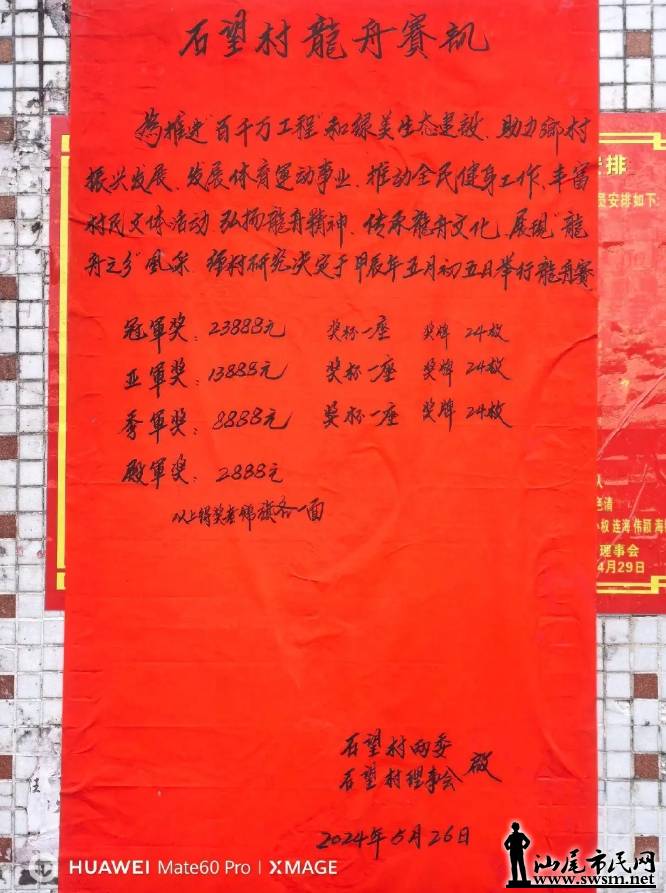 石望村龍舟赛訊
為推进"百千万工程"和绿美生态建设、助力鄉村
振兴发展、发展体育運动事业、推动全民健身工作、丰富
村民文体活动 弘扬龍舟精神、传承龍舟文化、展现"龍
舟之乡"風采 经村研究决定于甲辰年五月初五日举行龍舟赛
冠軍奖:23888元 奖杯一座 奖牌 24枚
亚軍奖:13888元 奖杯一座 奖牌 24枚
季軍奖:8888元 奖杯一座 奖牌 24枚
殿軍奖:2888元
以上得奖者锦旗各一面
石望村两委
石望村理事会 啟
2024年5月26日
排
安排如下
清
权 连海 伟颖 海
理事会
4月29日
HUAWEI Mate60 Pro | XMAGE
汕尾市民网
www.swsm.net